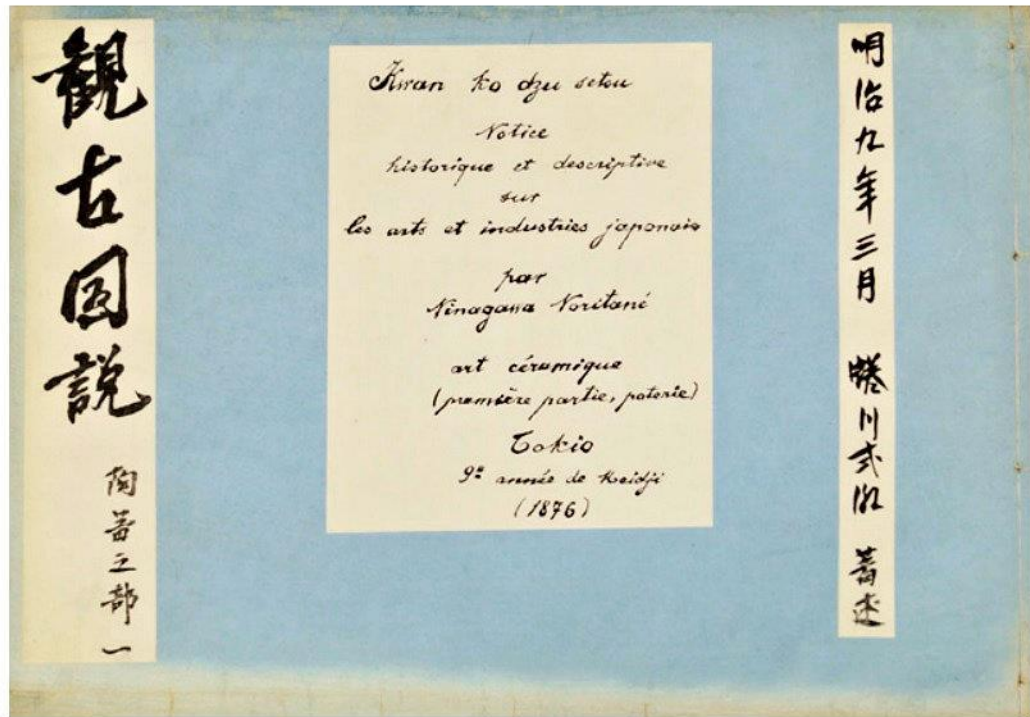 觀古図説
陶器之部 一
Kwan ko dzu setsu
Notice
historique et descriptive
sur
les arts et industries japonais
par
Ninagawa Noritané
art céramique
(première partie, poterie)
Tokio
9e année de Meidji
(1876)
明治九年三月 蜷川式胤 著述